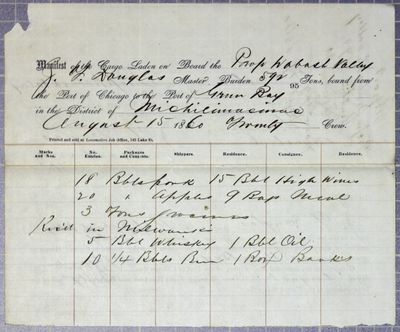 Manifest of the Cargo Laden on Board the Prop Wabash Valley
J. F. Douglas Master Burden 592 95 Tons, bound from
the Port of Chicago to the Port of Green Bay
in the District of Michilimacinac
August 15 1860 Twenty Crew.
Printed and sold at Locomotive Job Office, 142 Lake St.
Marks and Nos. No. Entries. Packages and Contents. Shippers. Residence. Consignee. Residence.
18 Bbls pork 15 Bbl High Wines
20 " Apples 9 Bags Meal
3 Tons
Rec'd in Milwaukee
5 Bbl Whiskey 1 Bbl Oil
10 1/4 Bbls Beer 1 Box Books